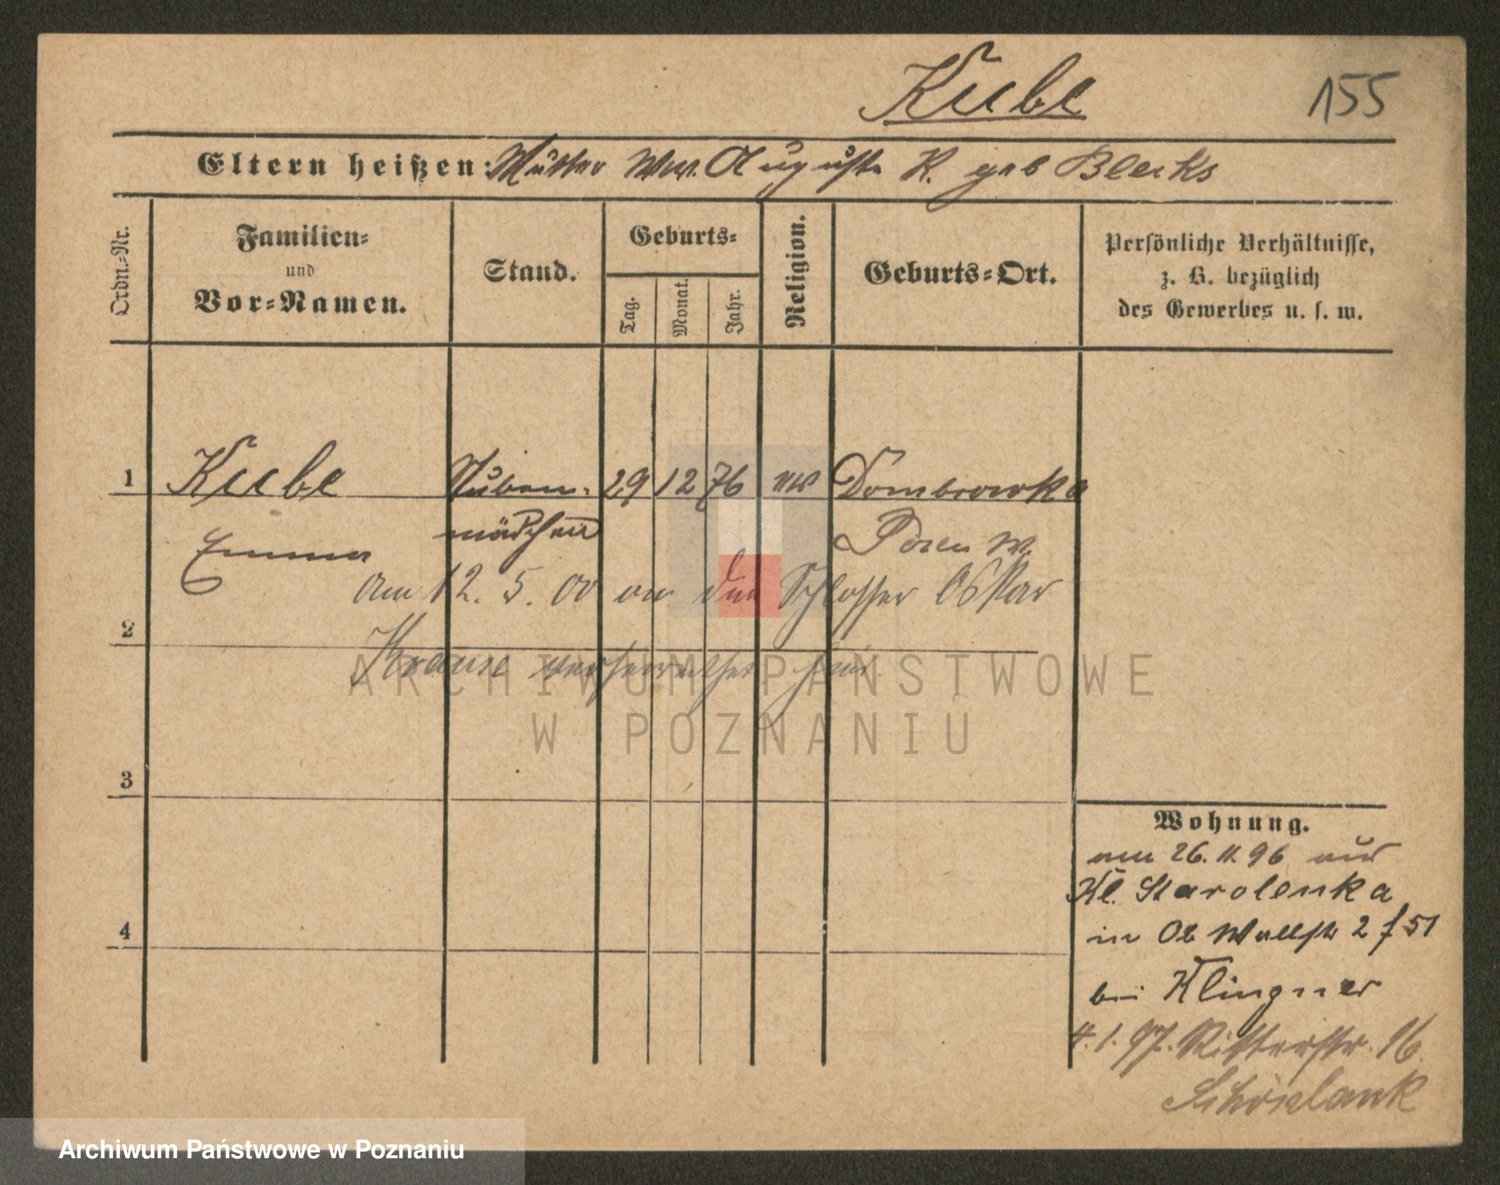 Kube
155
Eltern heißen: Mutter Ww. Auguste K. geb Bleiks
Ordn.-Nr.
Familien-
und
Vor-Namen.
Stand.
Geburts-
Tag.
Monat.
Jahr.
Religion.
Geburts-Ort.
Persönliche Verhältnisse,
z. B. bezüglich
des Gewerbes u. s. w.
1 Kube Stuben- 29 12 76 Dombrowka
Emma mädchen Posen W.
am 12. 5. 00 an den Schlosser Oskar
2
Krause verheirathet
3
4
Wohnung.
am 26.11.96 aus
Kl. Starolenka
in Ob Wallstr 2 f 51
bei Klingner
4.1.97. Ritterstr. 16.
ARCHIWUM PAŃSTWOWE
W POZNANIU
Archiwum Państwowe w Poznaniu